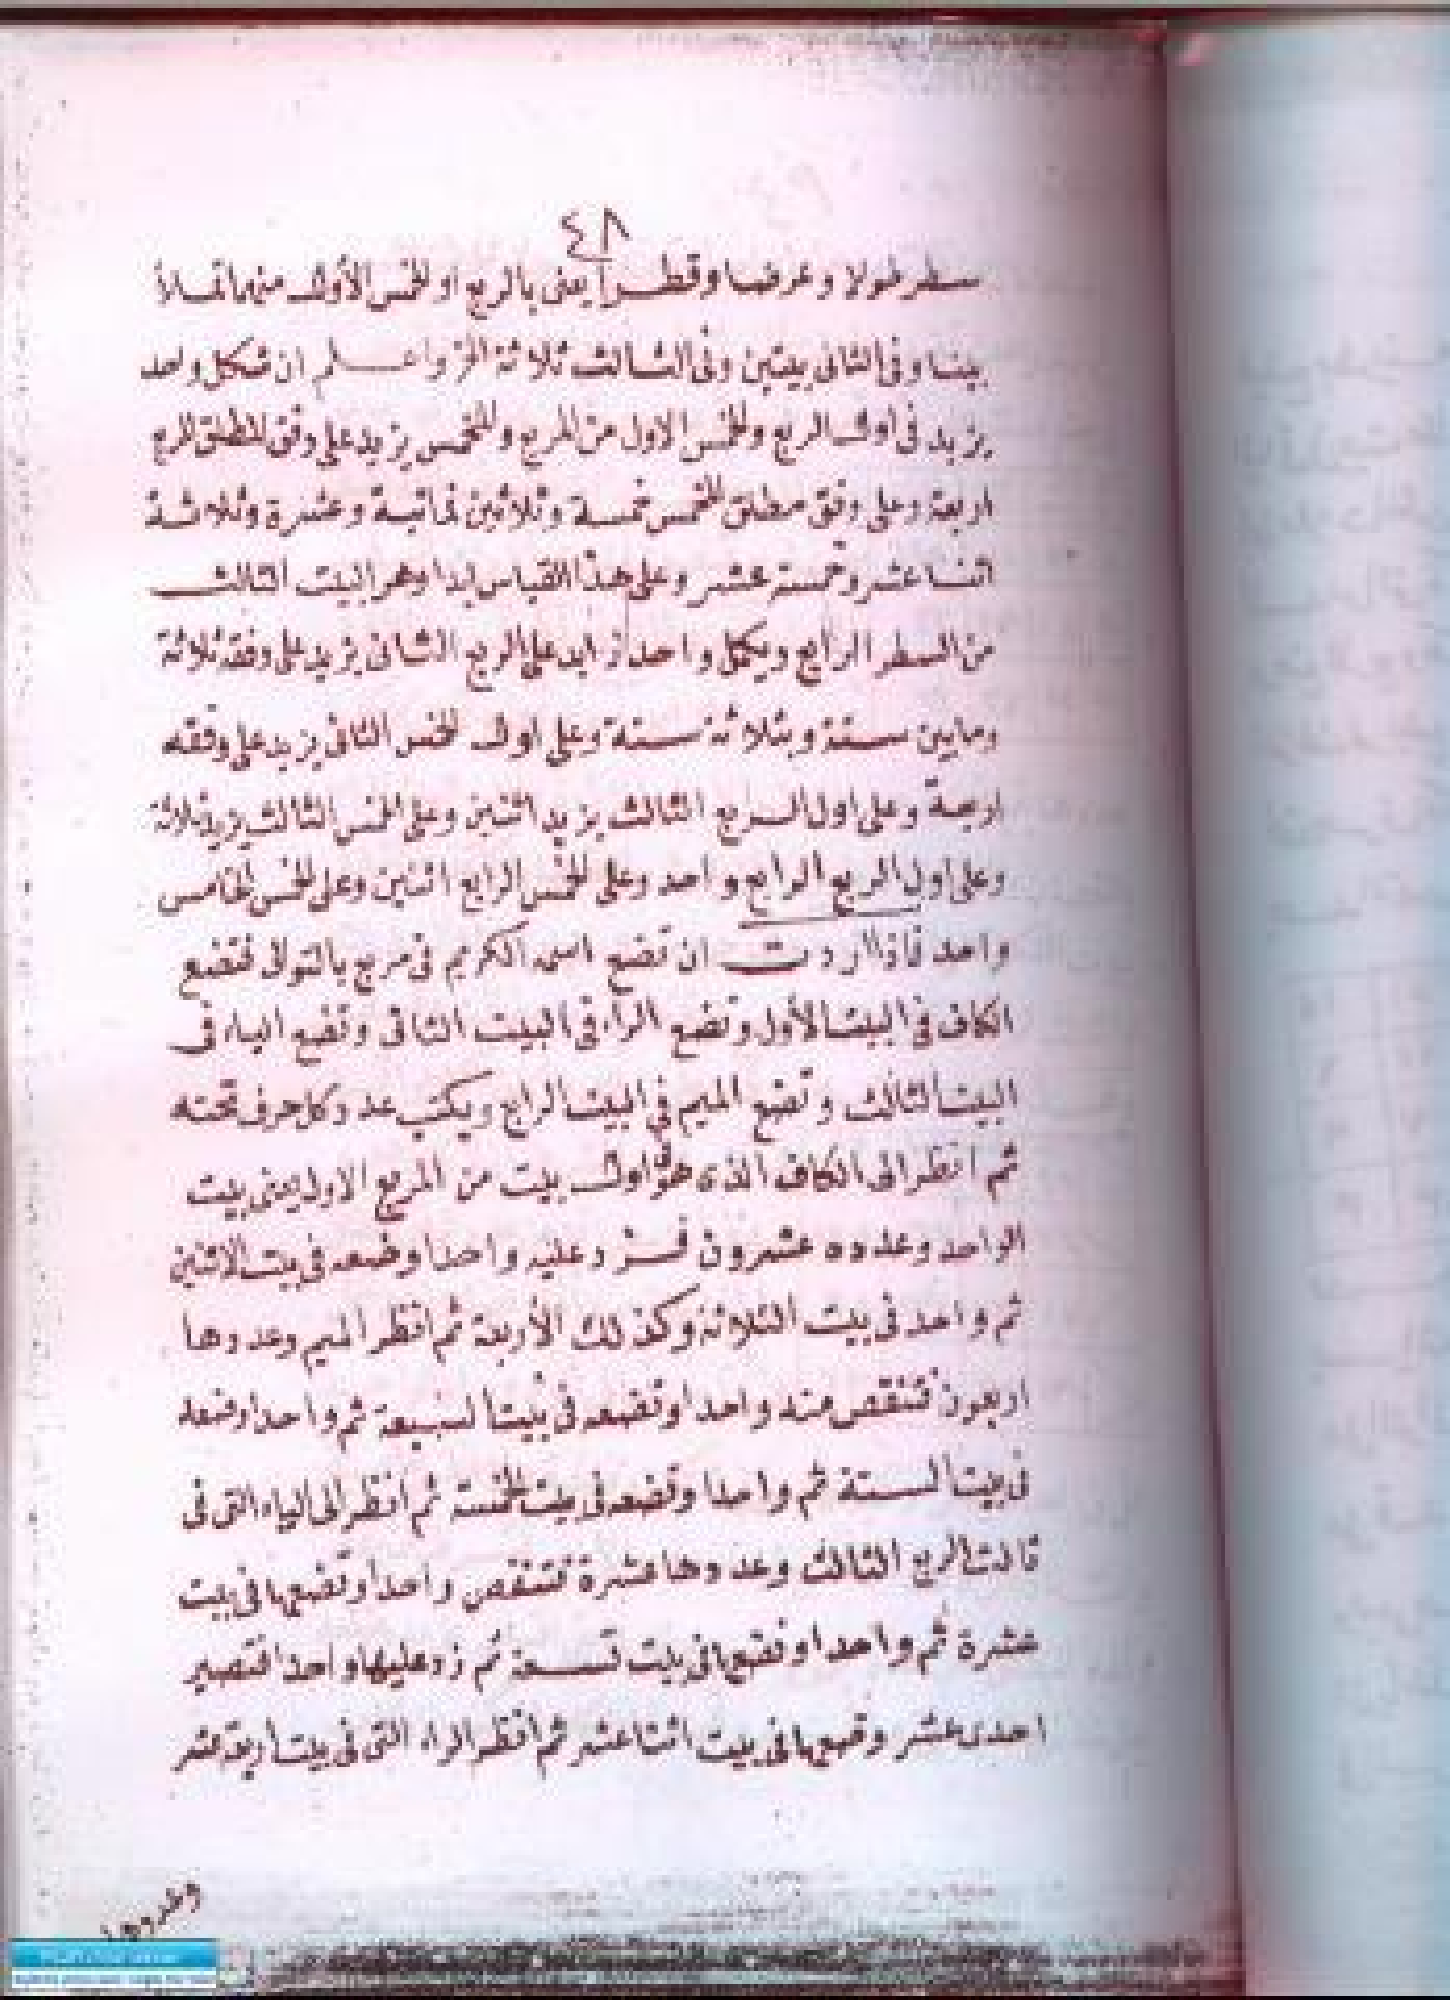 ٤٨
سطر طولا وعرضا وقطرا يعنى بالربع او الخمس الأول منهما تملأ
بيتا وفى الثانى بيتين وفى الثالث ثلاثة الخ واعلم ان شكل واحد
يزيد فى اول الربع والخمس الاول من المربع والمخمس يزيد على وفق المطلق المربع
اربعة وعلى وفق مطلق المخمس خمسة وثلاثين ثمانية وعشرة وثلاثة
اثنا عشر وخمسة عشر وعلى هذا القياس ابدا وهو البيت الثالث
من السطر الرابع ويكمل واحد زايد على الربع الثانى يزيد على وفقه ثلاثة
ومايين ستة وبثلاثة ستة وعلى اول الخمس الثانى يزيد على وفقه
اربعة وعلى اول الربع الثالث يزيد اثنين وعلى الخمس الثالث يزيد ثلاثة
وعلى اول الربع الرابع واحد وعلى الخمس الرابع اثنين وعلى الخمس الخامس
واحد فاذا اردت ان تضع اسمه الكريم فى مربع بالتوالى فتضع
الكاف فى البيت الأول وتضع الراء فى البيت الثانى وتضع الياء فى
البيت الثالث وتضع الميم فى البيت الرابع ويكتب عدد كل حرف تحته
ثم انظر الى الكاف الذى هو فى اول بيت من المربع الاول يعنى بيت
الواحد وعدده عشرون فزد عليه واحدا وضعه فى بيت الاثنين
ثم واحد فى بيت الثلاثة وكذلك الأربعة ثم انظر الميم وعددها
اربعون فتنقص منه واحدا وتضعه فى بيت السبعة ثم واحدا وضعه
فى بيت الستة ثم واحدا وتضعه فى بيت الخمسة ثم انظر الى الياء التى فى
ثالث الربع الثالث وعددها عشرة فتنقص واحدا وتضعها فى بيت
عشرة ثم واحدا وتضعها فى بيت تسعة ثم زد عليها واحدا فتصير
احدى عشر وضعها فى بيت اثنا عشر ثم انظر الراء التى فى بيت اربعة عشر
وعددها